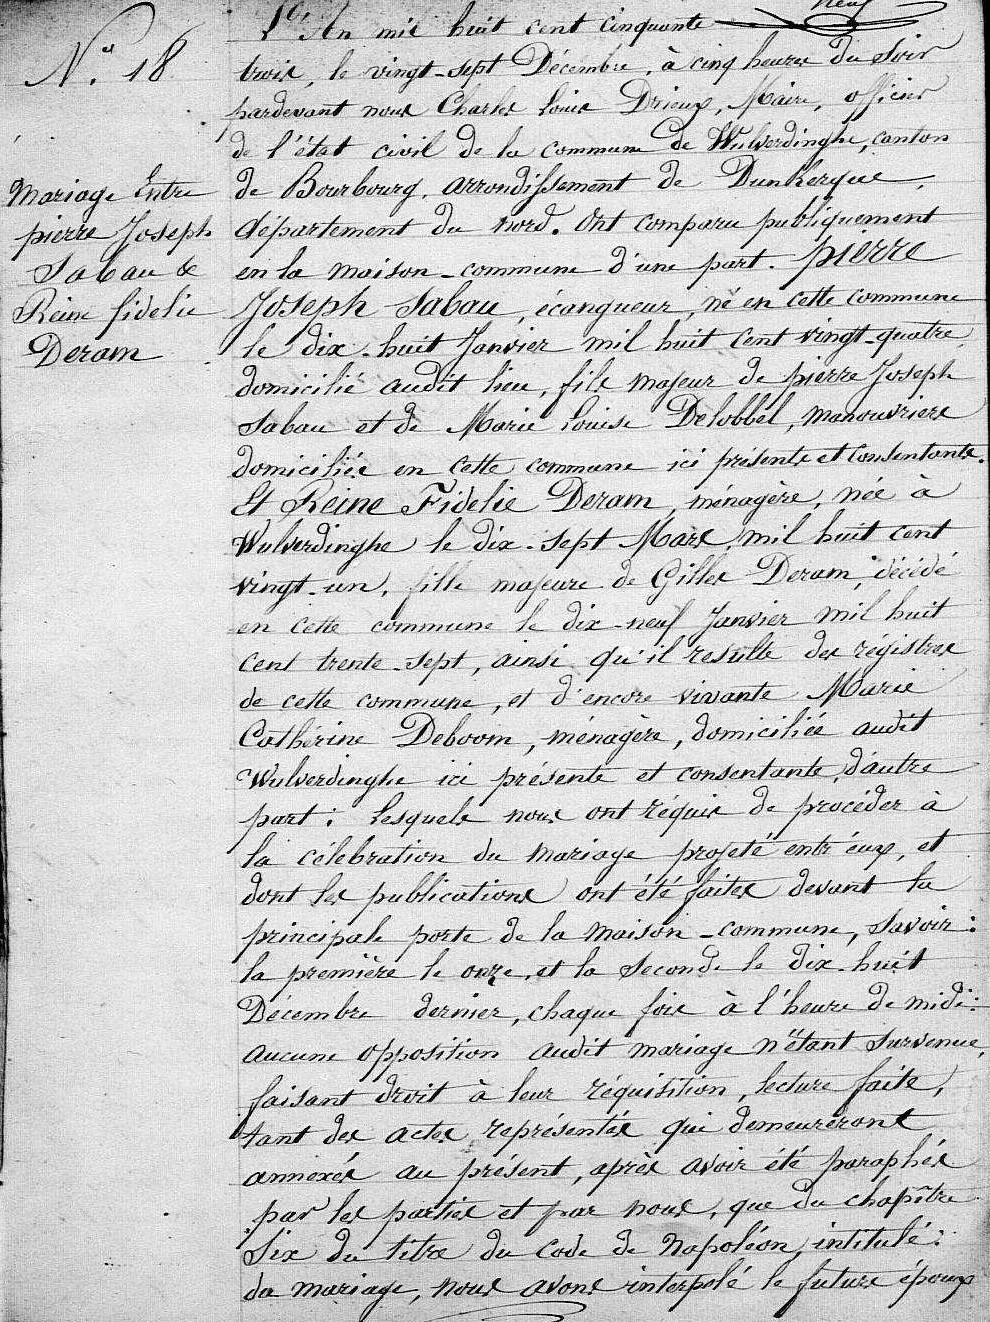 neuf
N.° 18
Mariage Entre
pierre Joseph
Sabau &
Reine fidelie
Deram
L'An mil huit cent cinquante
trois, le vingt-sept Décembre, à cinq heures du Soir
pardevant nous Charles Louis Drieux, Maire, officier
de l'état civil de la commune de Wulverdinghe, canton
de Bourbourg, arrondissement de Dunkerque,
département du nord. Ont comparu publiquement
en la maison-commune d'une part. pierre
Joseph Sabau, écangueur, né en cette commune
le dix-huit Janvier mil huit Cent vingt-quatre,
domicilié audit lieu, fils majeur de pierre Joseph
Sabau et de Marie Louise Delobbel, manouvriers
domiciliés en cette commune ici présents et Consentants.
Et Reine Fidelie Deram, ménagère, née à
Wulverdinghe le dix-sept Mars mil huit cent
vingt-un, fille majeure de Gilles Deram, décédé
en cette commune le dix-neuf Janvier mil huit
cent trente-sept, ainsi qu'il resulte des régistres
de cette commune, et d'encore vivante Marie
Cathérine Deboom, ménagère, domiciliée audit
Wulverdinghe ici présente et consentante, d'autre
part: lesquels nous ont réquis de procéder à
la célebration du mariage projeté entr'eux, et
dont les publications ont été faites devant la
principale porte de la maison-commune, Savoir:
la première le onze, et la seconde le dix-huit
Décembre dernier, chaque fois à l'heure de midi:
aucune opposition audit mariage n'étant Survenue,
faisant droit à leur réquisition, lecture faite,
tant des actes représentés qui demeureront
annexés au présent, après avoir été paraphés
par les parties et par nous, que du chapître
Six du titre du Code de Napoléon, intitulé:
du mariage, nous avons interpolé le future époux